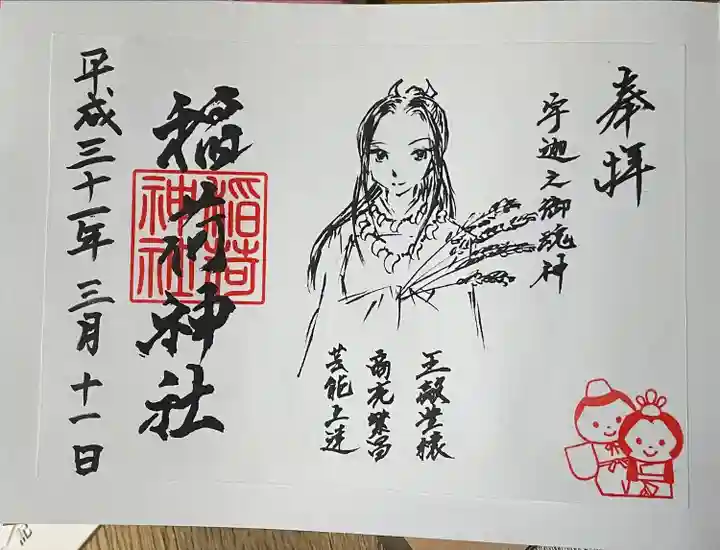 奉拝
宇迦之御魂神
五穀豊穣
商売繁昌
芸能上達
稲荷神社
稲荷
神社
平成三十一年 三月 十一日